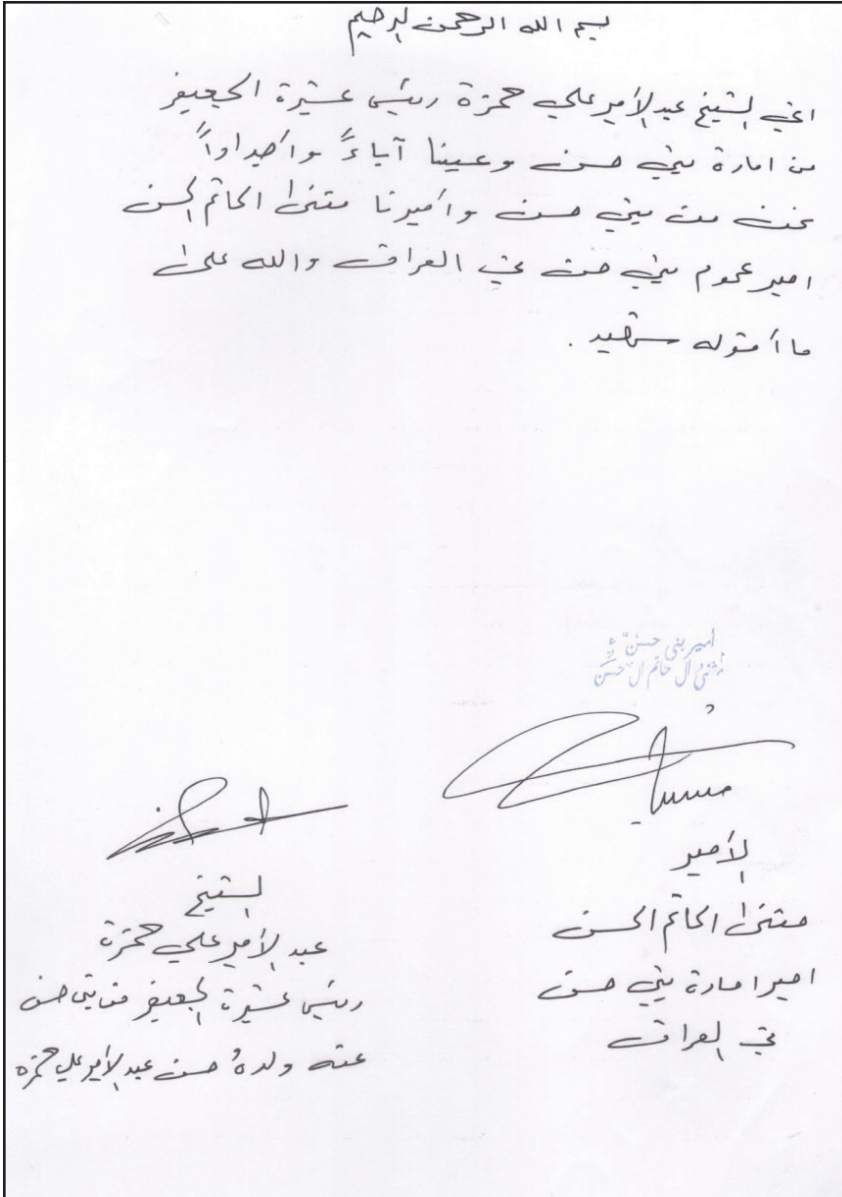 بسم الله الرحمن الرحيم
اني الشيخ عبد الأمير علي حمزة رئيس عشيرة الجعيفر
من امارة بني حسن وعينا آباءً وأجداداً
نحن من بني حسن وأميرنا مثنى الحاتم الحسن
امير عموم بني حسن في العراق والله على
ما أقوله شهيد .
أمير بني حسن
مثنى ال حاتم ال حسن
الأمير
مثنى الحاتم الحسن
امير امارة بني حسن
في العراق
الشيخ
عبد الأمير علي حمزة
رئيس عشيرة الجعيفر من بني حسن
عنه ولدهُ حسن عبد الأمير علي حمزه